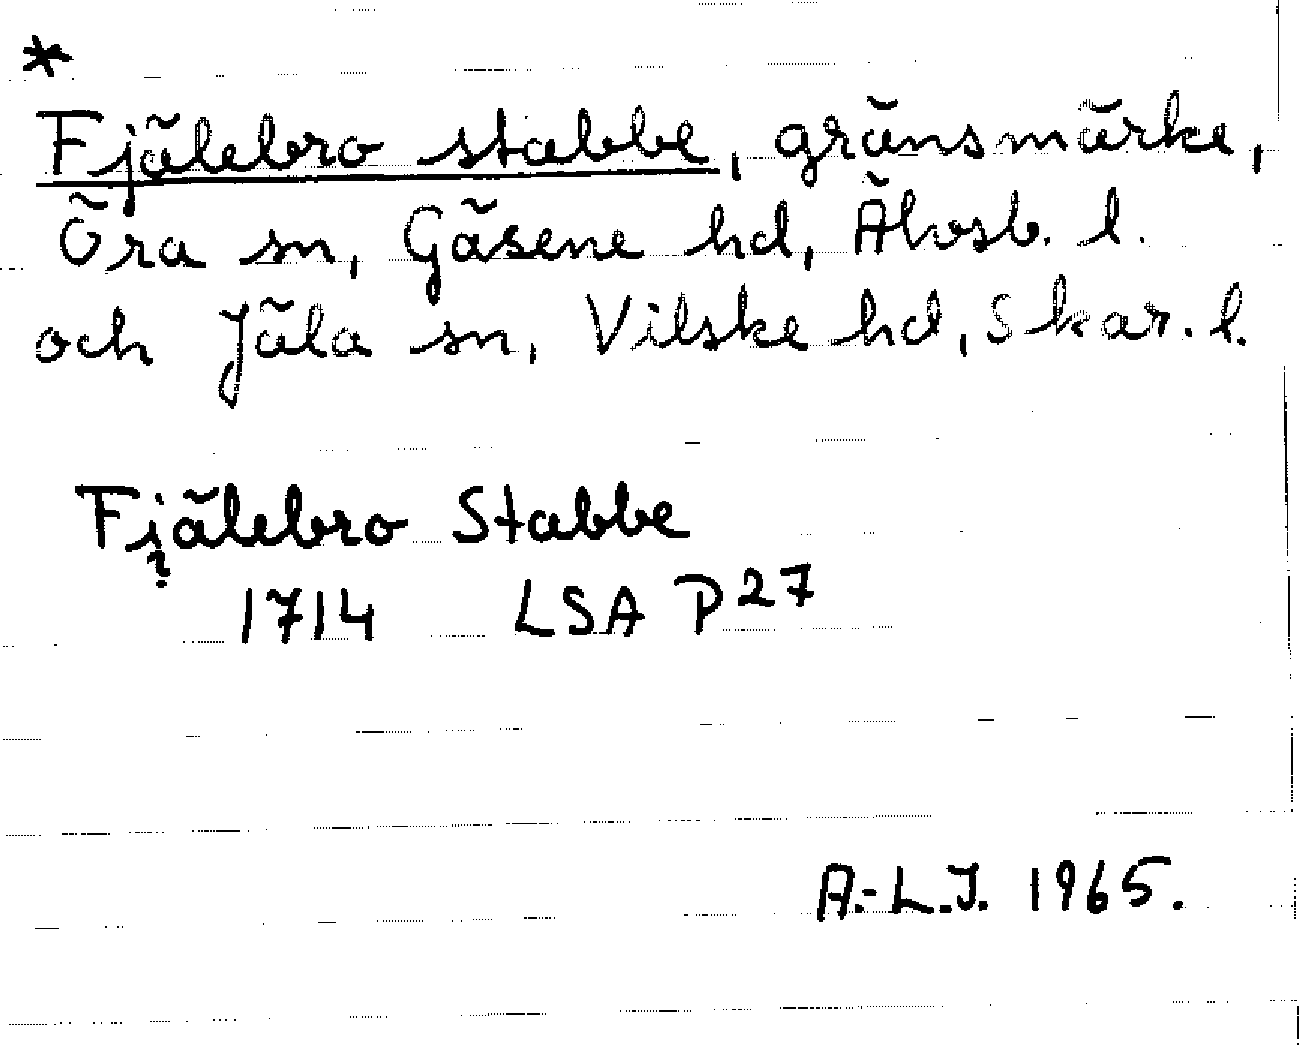 *
Fjälebro stabbe, gränsmärke,
Öra sn, Gäsene hd, Älvsb. l.
och Jäla sn, Vilske hd, Skar. l.
Fjälebro Stabbe
?
1714 LSA P27
A.-L.J. 1965.